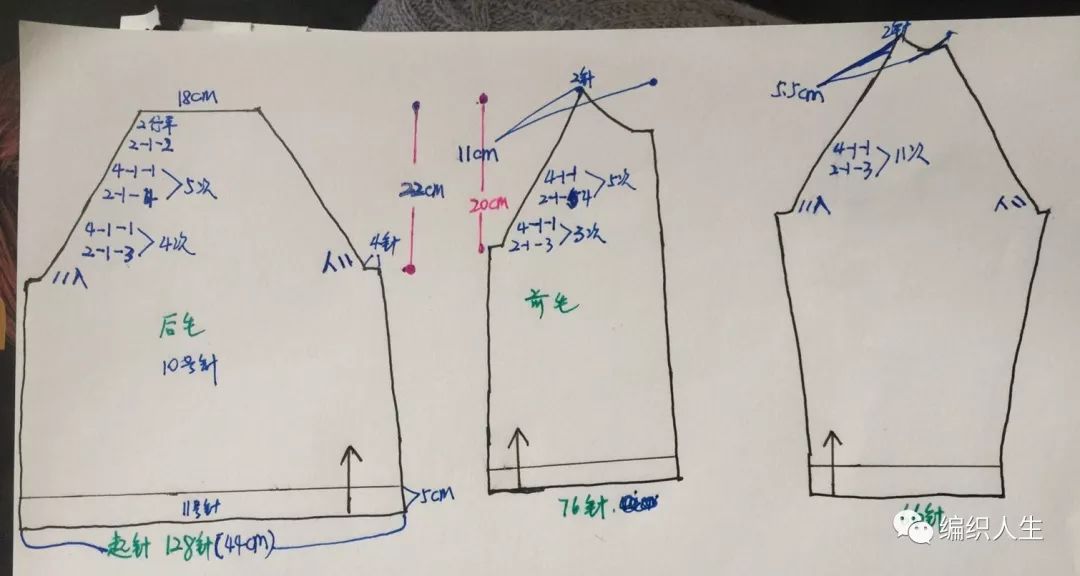 18cm
2行平
2-1-2
4-1-1
2-1-4 > 5次
4-1-1
2-1-3 > 4次
4针
后毛
10号针
11号针
5cm
起针 128针(44cm)
22cm
20cm
2针
11cm
4-1-1
2-1-4 > 5次
4-1-1
2-1-3 > 3次
前毛
76针
2针
5.5cm
4-1-1
2-1-3 > 11次
编织人生